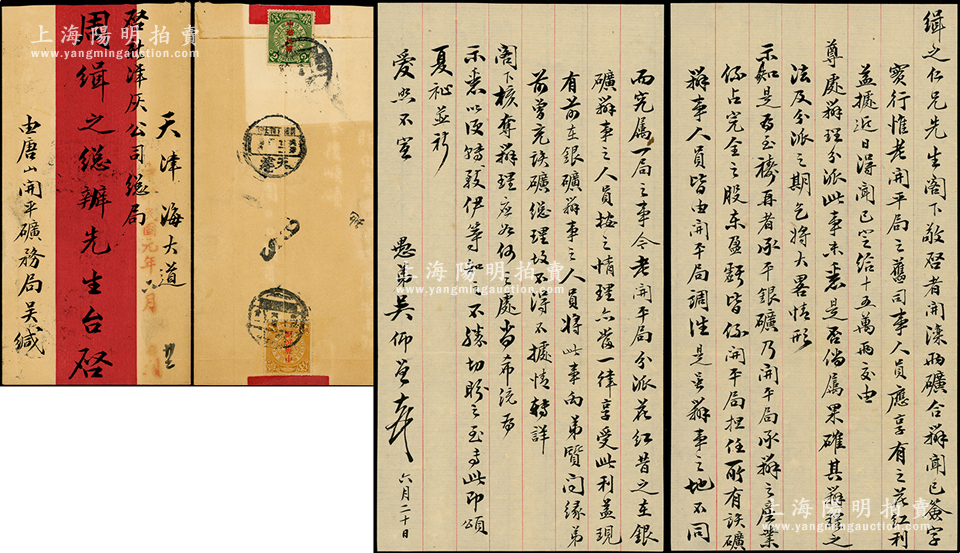 上海陽明拍賣
www.yangmingauction.com
天津海大道
啓新洋灰公司總局
周緝之總辦先生台啓
國元年六月
由唐山開平礦務局吳緘
緝之仁兄先生閣下敬啓者開灤兩礦合辦聞已簽字
實行惟老開平局之舊司事人員應享有之花紅利
益據近日得聞已定給十五萬兩交由
尊處辦理分派此事未悉是否倘属果確其辦理之
法及分派之期乞將大畧情形
示知是為至禱再者承平銀礦乃開平局承辦之産業
係占完全之股東盈虧皆係開平局担任所有該礦
辦事人員皆由開平局調性是辦事之地不同
而完属一局之事今老開平局分派花紅昔之在銀
礦辦事之人員按之情理亦當一律享受此利益現
有前在銀礦辦事之人員將此事向弟質問緣弟
前曾充該礦總理故不得不據情轉詳
閣下核奪辦理應如何之處尚希洗
示悉以便轉致伊等知不勝切盼之至专此即頌
夏祉並祈
愛照不宣
愚弟吳仰曾
六月二十日